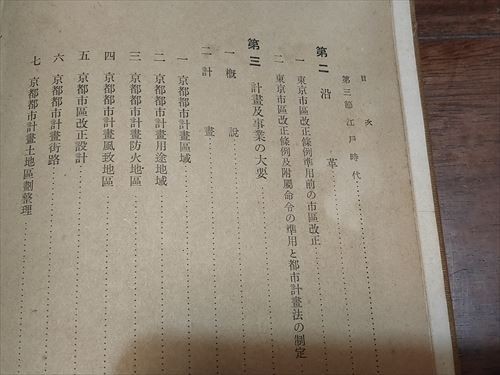 目次
第三節 江戸時代
第二 沿革
一 東京市區改正條例準用前の市區改正
二 東京市區改正條例及附屬命令の準用と都市計畫法の制定
第三 計畫及事業の大要
一 槪說
二 計畫
一 京都都市計畫區域
二 京都都市計畫用途地域
三 京都都市計畫防火地區
四 京都都市計畫風致地區
五 京都市區改正設計
六 京都都市計畫街路
七 京都都市計畫土地區劃整理